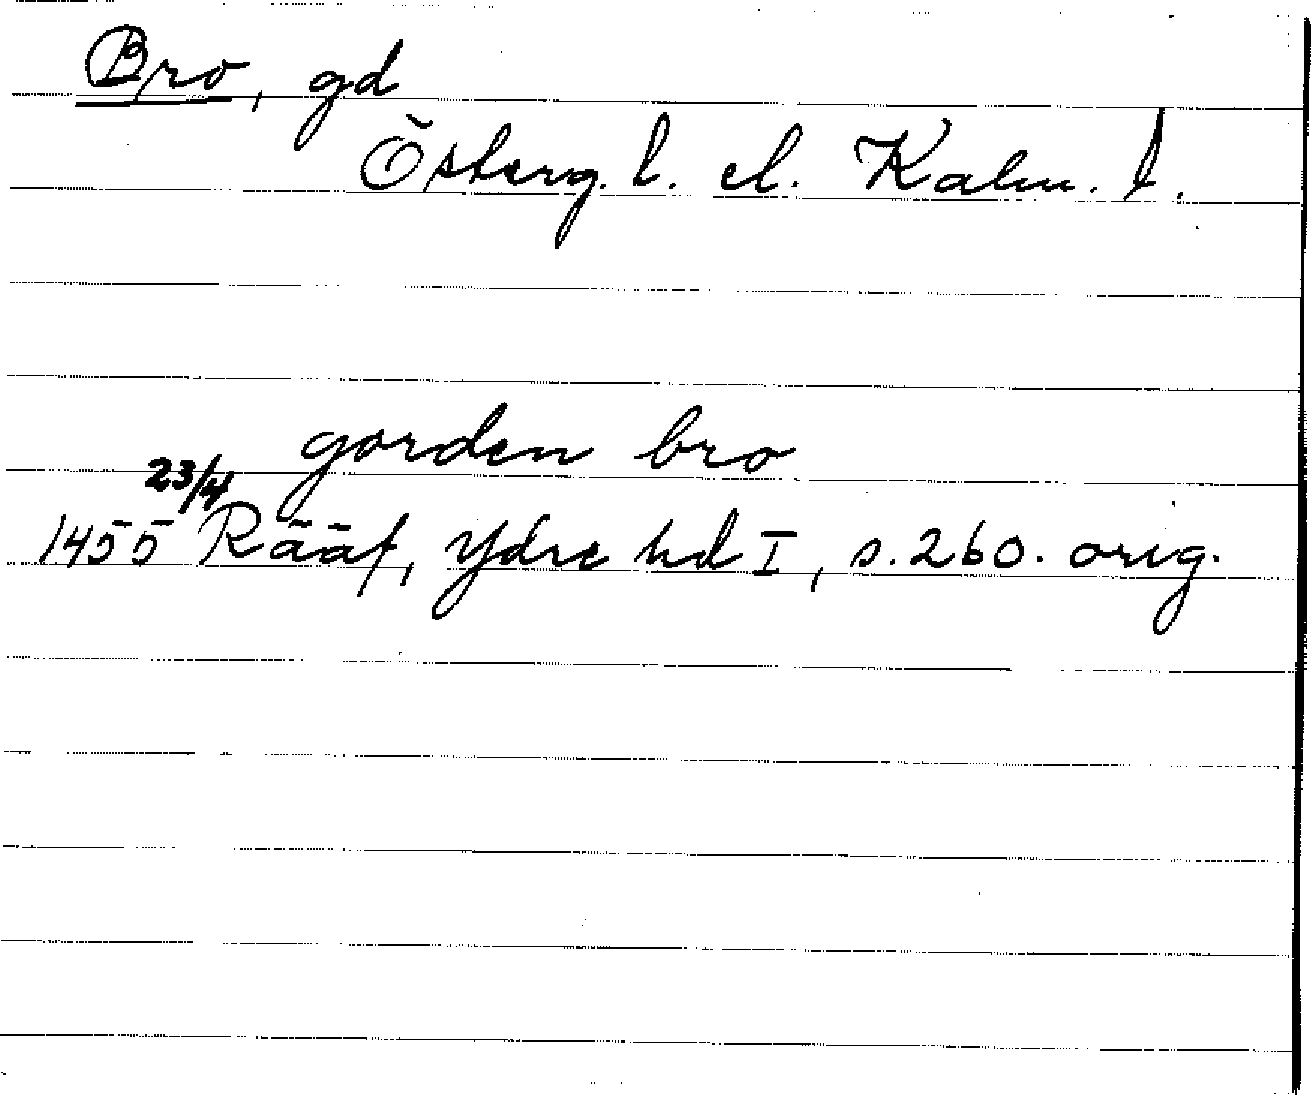 Bro, gd
Österg. l. el. Kalm. l.
gorden bro
23/4
1455 Rääf, Ydre hd I, s. 260. orig.